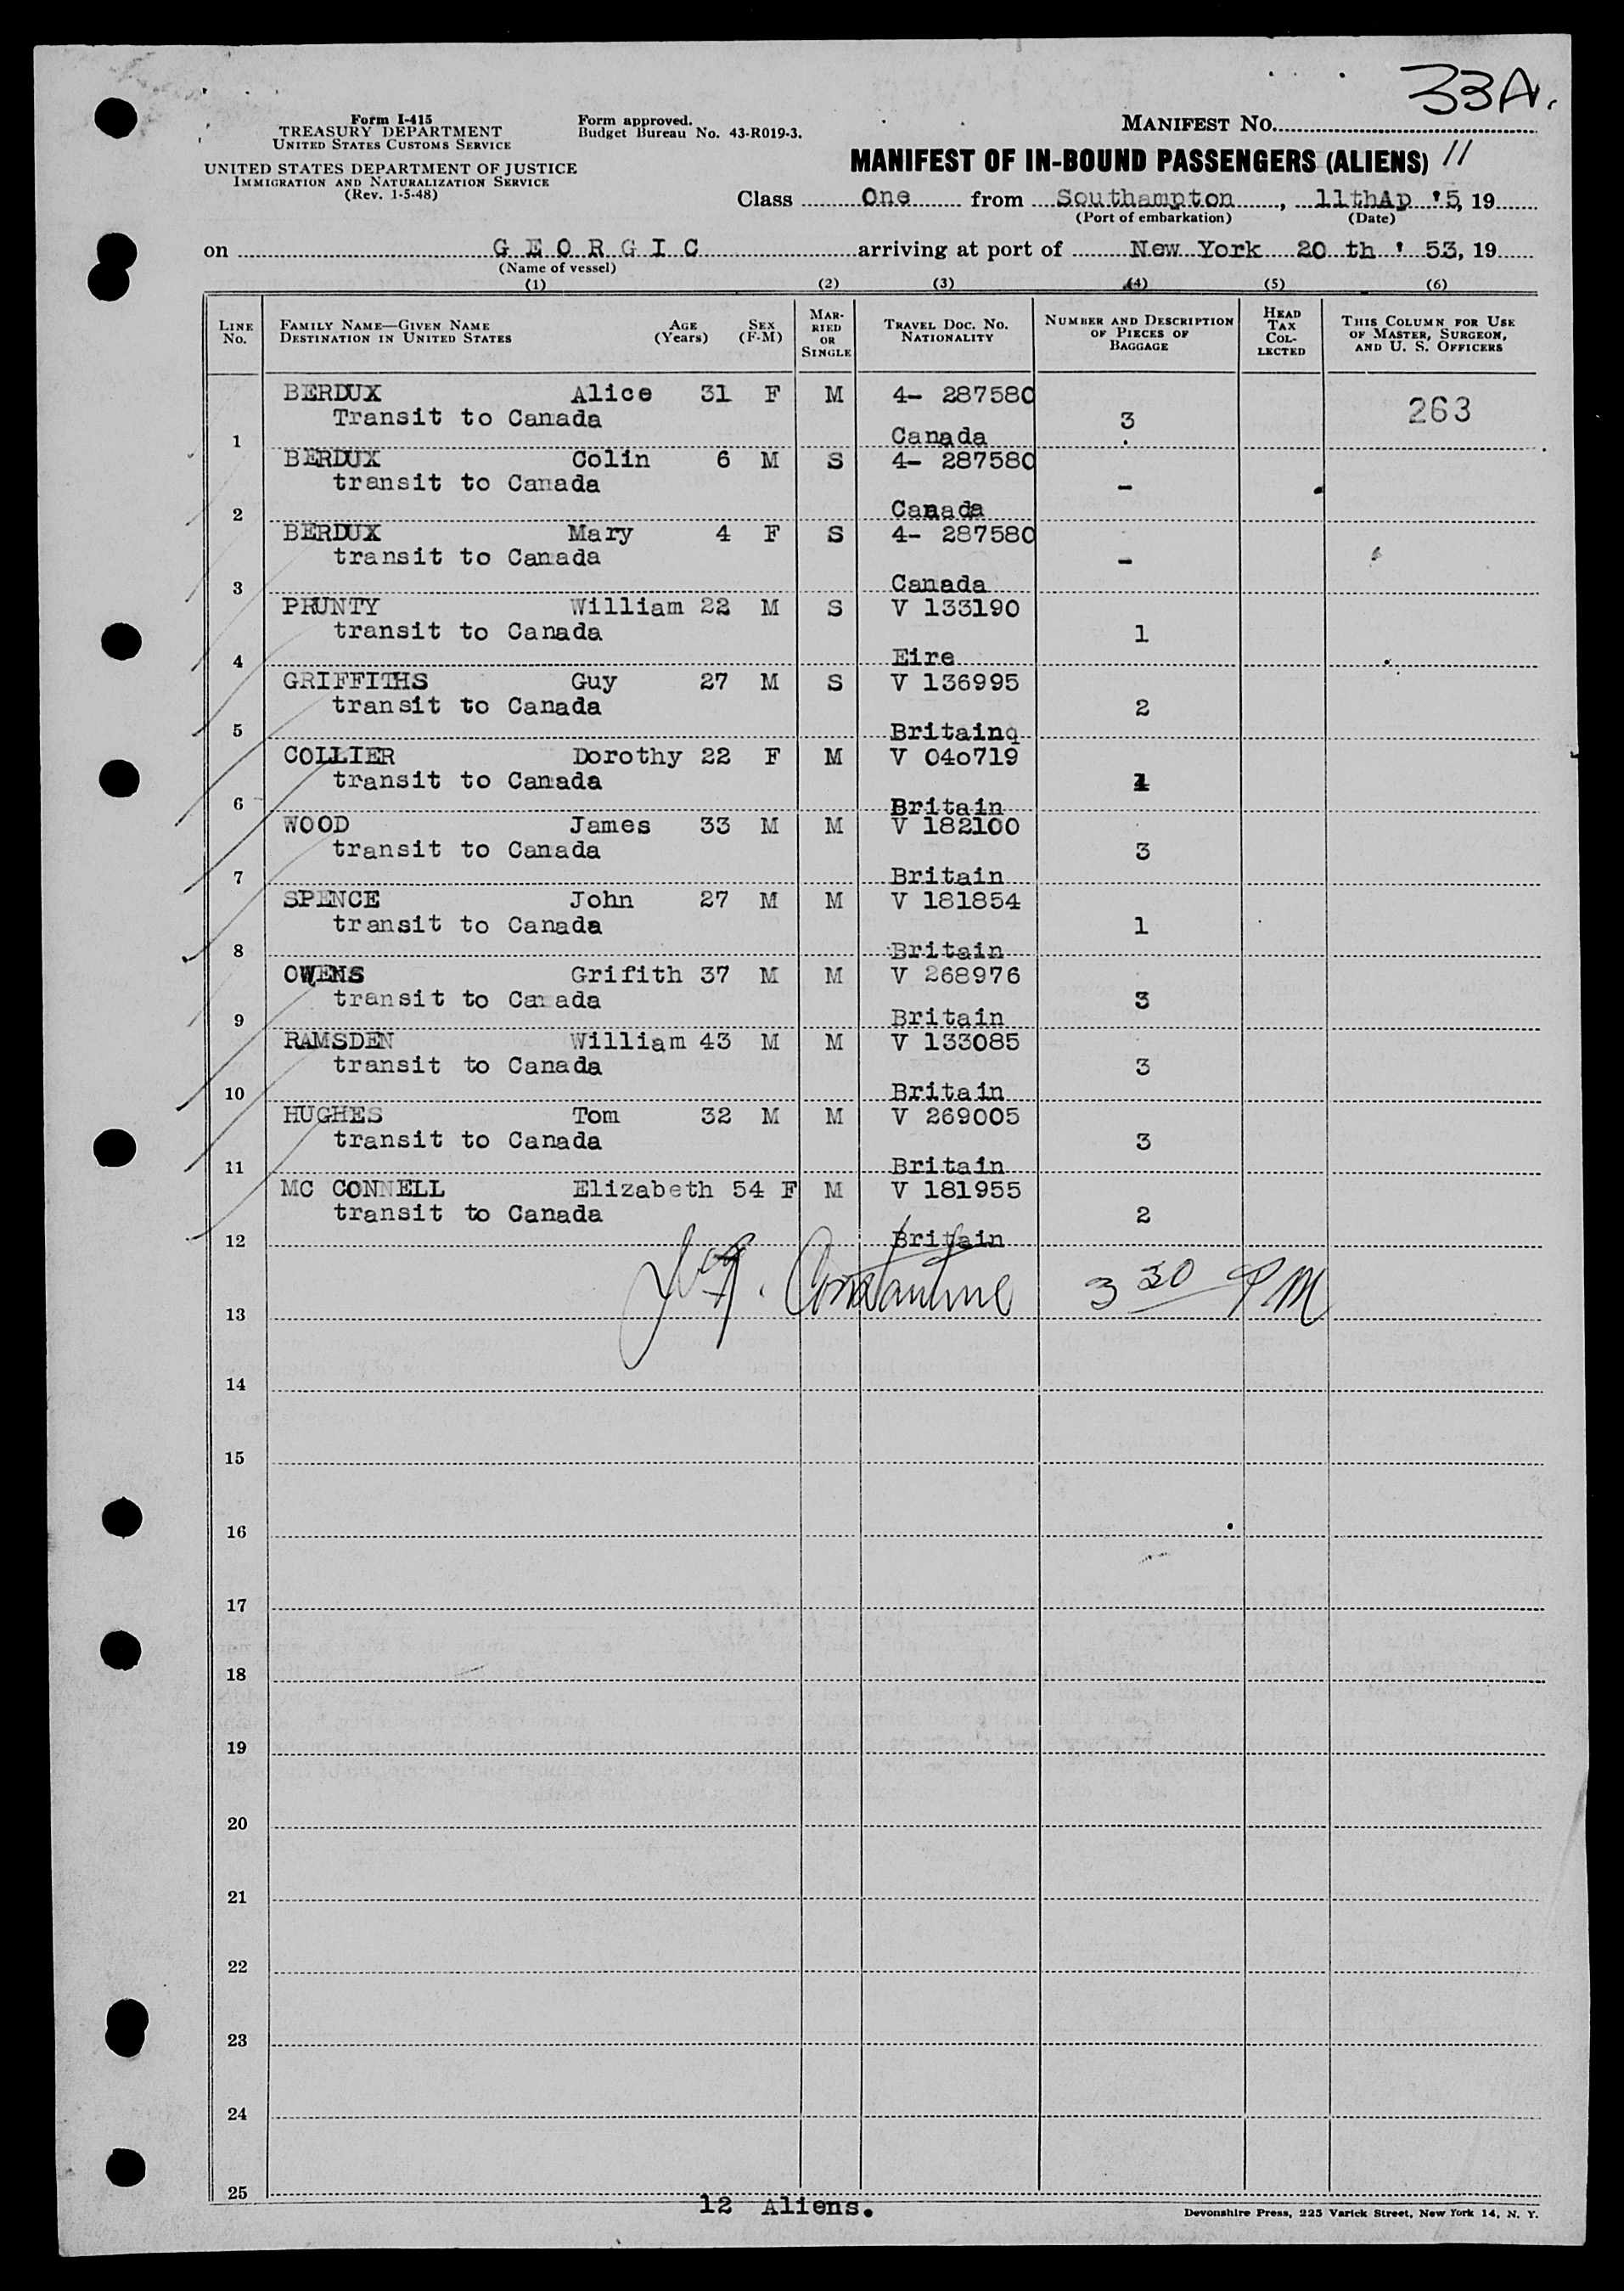 33A.
Form I-415
TREASURY DEPARTMENT
UNITED STATES CUSTOMS SERVICE
UNITED STATES DEPARTMENT OF JUSTICE
IMMIGRATION AND NATURALIZATION SERVICE
(Rev. 1-5-48)
Form approved.
Budget Bureau No. 43-R019-3.
MANIFEST NO.
MANIFEST OF IN-BOUND PASSENGERS (ALIENS) 11
Class One from Southampton, 11thAp '5, 19
(Port of embarkation) (Date)
on G E O R G I C arriving at port of New York 20 th ' 53, 19
(Name of vessel)
(1) (2) (3) (4) (5) (6)
LINE NO. FAMILY NAME—GIVEN NAME DESTINATION IN UNITED STATES AGE (Years) SEX (F-M) MARRIED OR SINGLE TRAVEL DOC. NO. NATIONALITY NUMBER AND DESCRIPTION OF PIECES OF BAGGAGE HEAD TAX COLLECTED THIS COLUMN FOR USE OF MASTER, SURGEON, AND U. S. OFFICERS
BERDUX Alice 31 F M 4- 287580 263
Transit to Canada 3
1 Canada
BERDUX Colin 6 M S 4- 287580
transit to Canada -
2 Canada
BERDUX Mary 4 F S 4- 287580
transit to Canada -
3 Canada
PRUNTY William 22 M S V 133190
transit to Canada 1
4 Eire
GRIFFITHS Guy 27 M S V 136995
transit to Canada 2
5 Britainq
COLLIER Dorothy 22 F M V 04o719
transit to Canada
6 Britain
WOOD James 33 M M V 182100
transit to Canada 3
7 Britain
SPENCE John 27 M M V 181854
transit to Canada 1
8 Britain
OWENS Grifith 37 M M V 268976
transit to Canada 3
9 Britain
RAMSDEN William 43 M M V 133085
transit to Canada 3
10 Britain
HUGHES Tom 32 M M V 269005
transit to Canada 3
11 Britain
MC CONNELL Elizabeth 54 F M V 181955
transit to Canada 2
12 Britain
Constantine 3 30 PM
13
14
15
16
17
18
19
20
21
22
23
24
25
12 Aliens.
Devonshire Press, 225 Varick Street, New York 14, N. Y.